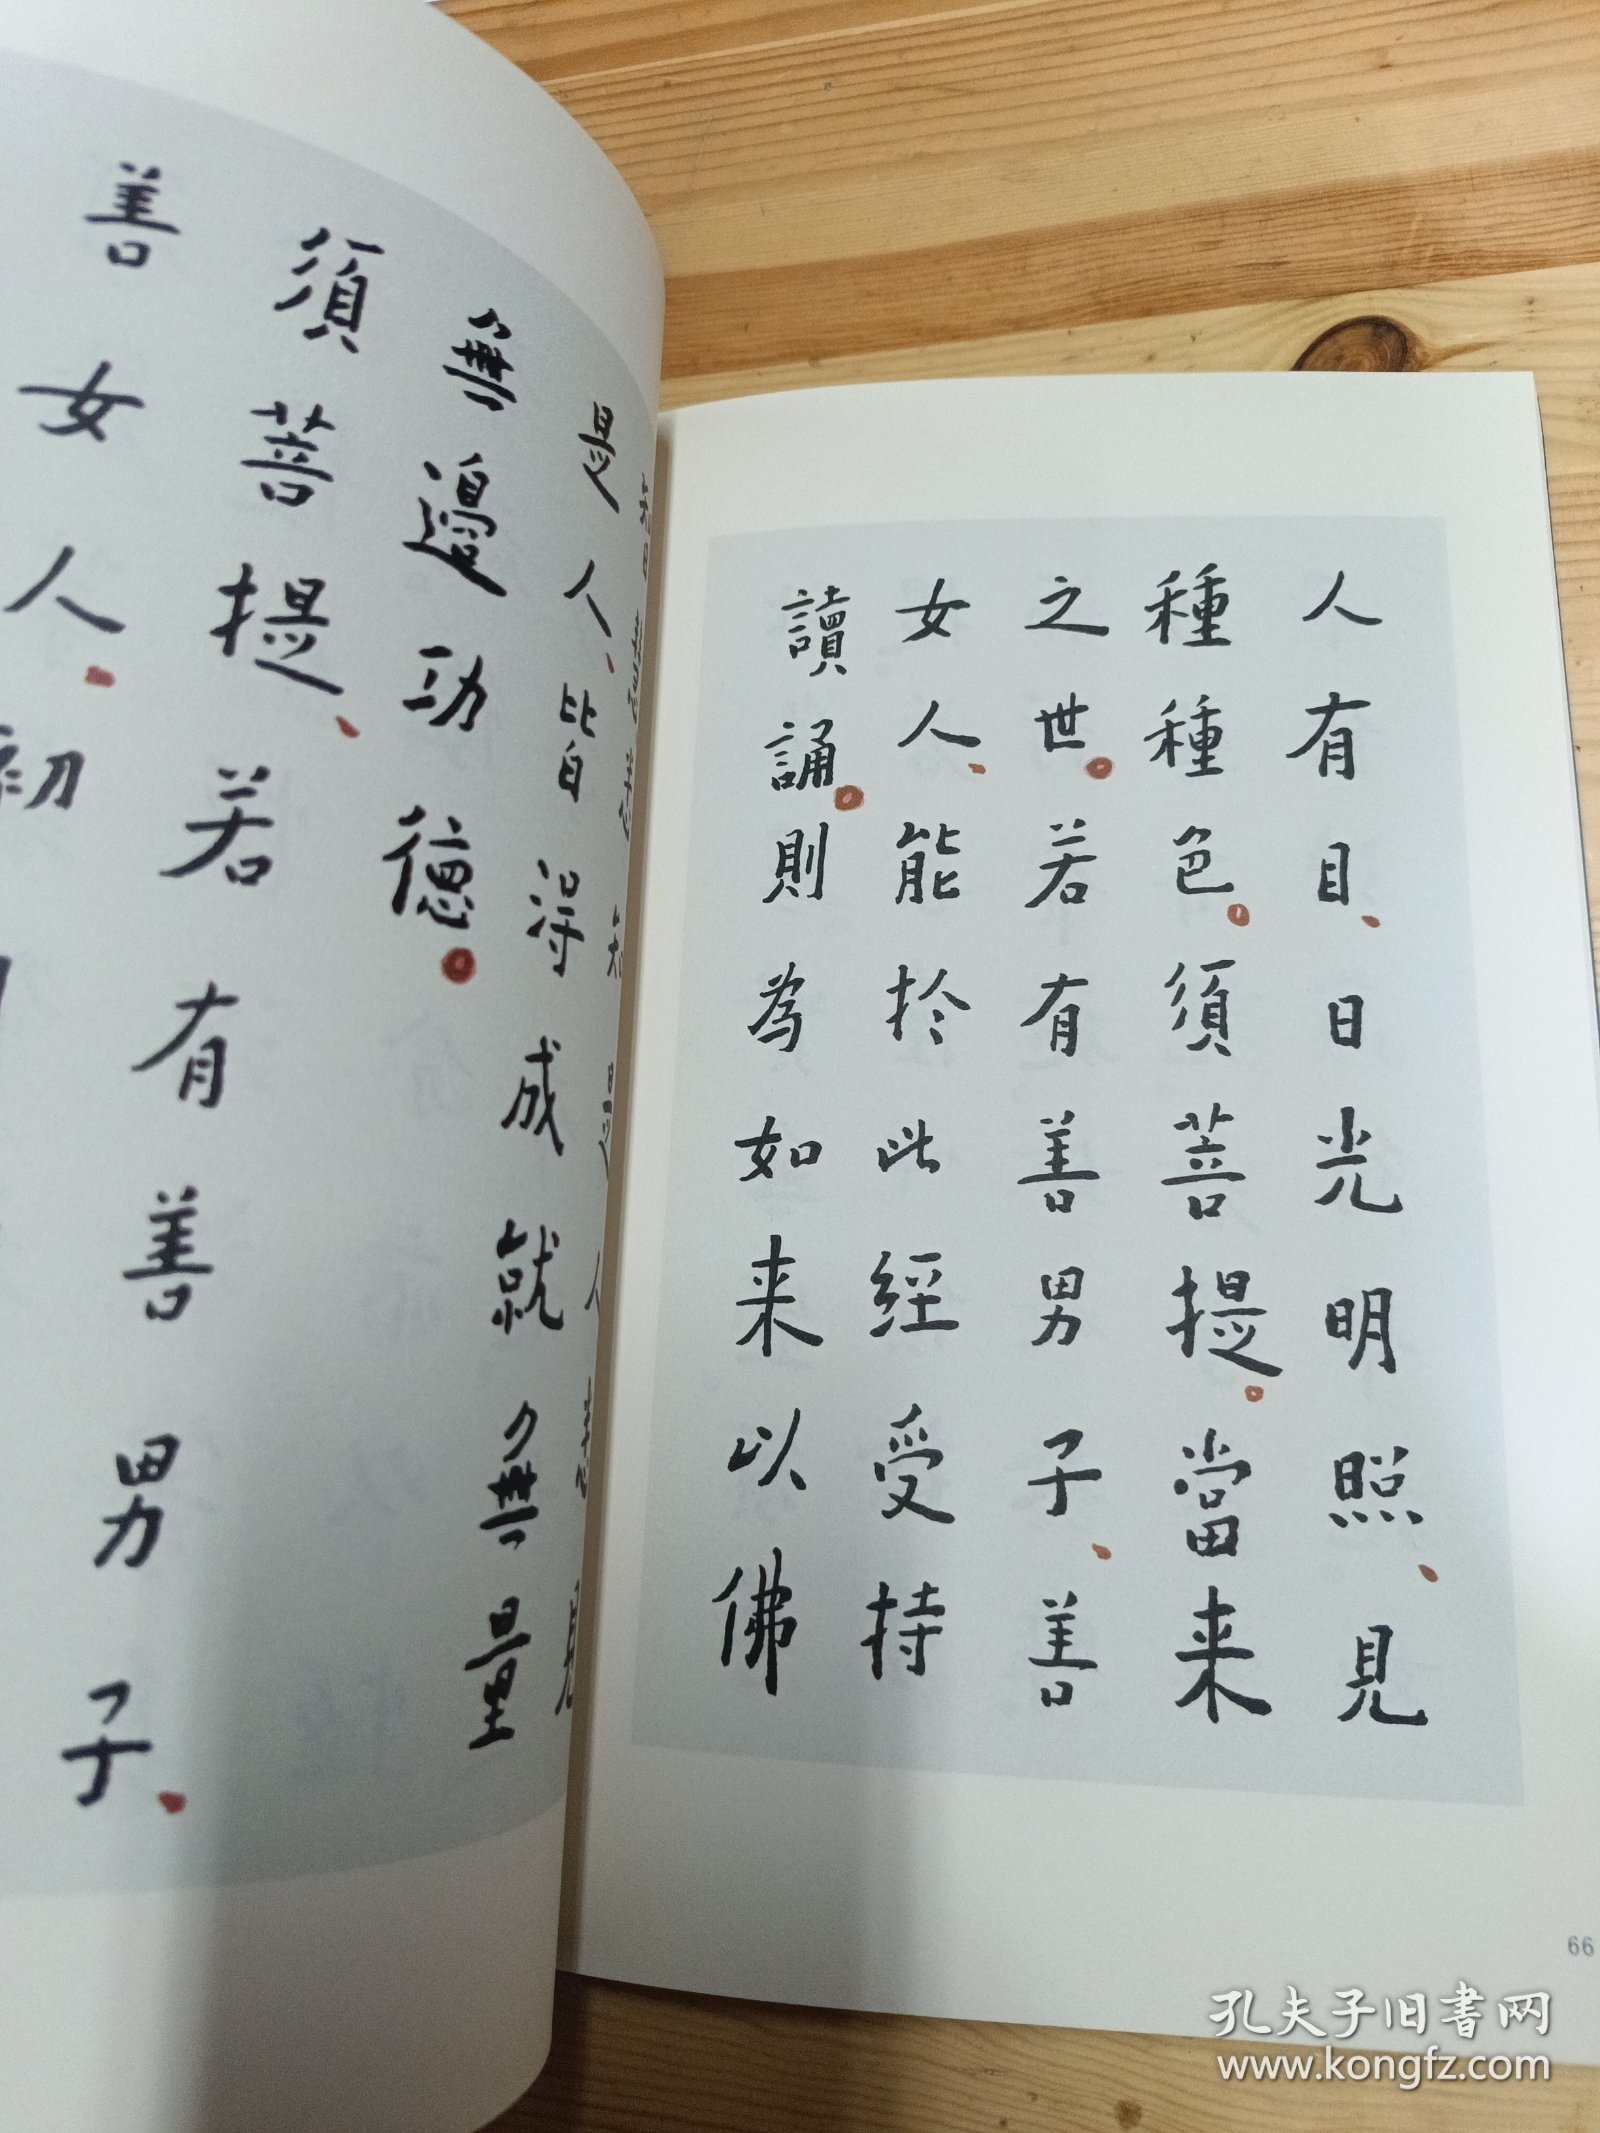 人有目、日光明照、見
種種色。須菩提。當来
之世。若有善男子、善
女人、能於此經受持
讀誦。則為如来以佛
是人、皆得成就無量
無邊功德。
須菩提、若有善男子、
善女人、初
66
孔夫子旧书网
www.kongfz.com